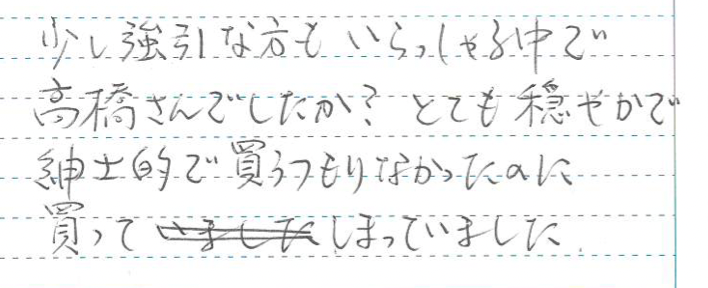 少し強引な方もいらっしゃる中で
高橋さんでしたか？とても穏やかで
紳士的で買うつもりなかったのに
買って しまっていました